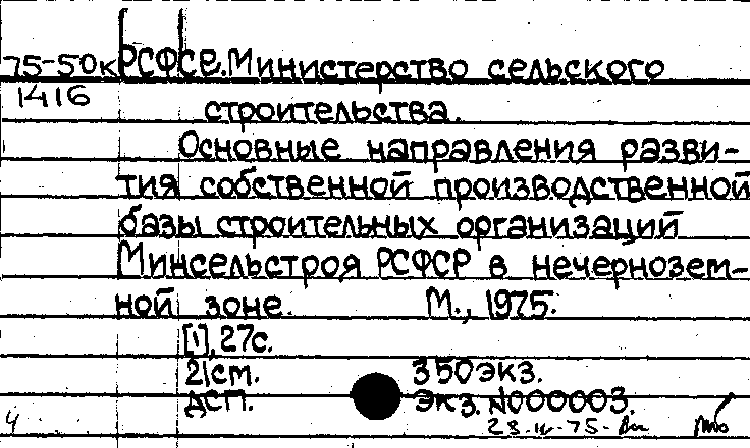 75-50к РСФСР. Министерство сельского
1416 строительства.
Основные направления разви-
тия собственной производственной
базы строительных организаций
Минсельстроя РСФСР в нечернозем-
ной зоне. М., 1975.
[1], 27с.
21см. 350экз.
ДСП. Экз. N000003.
4